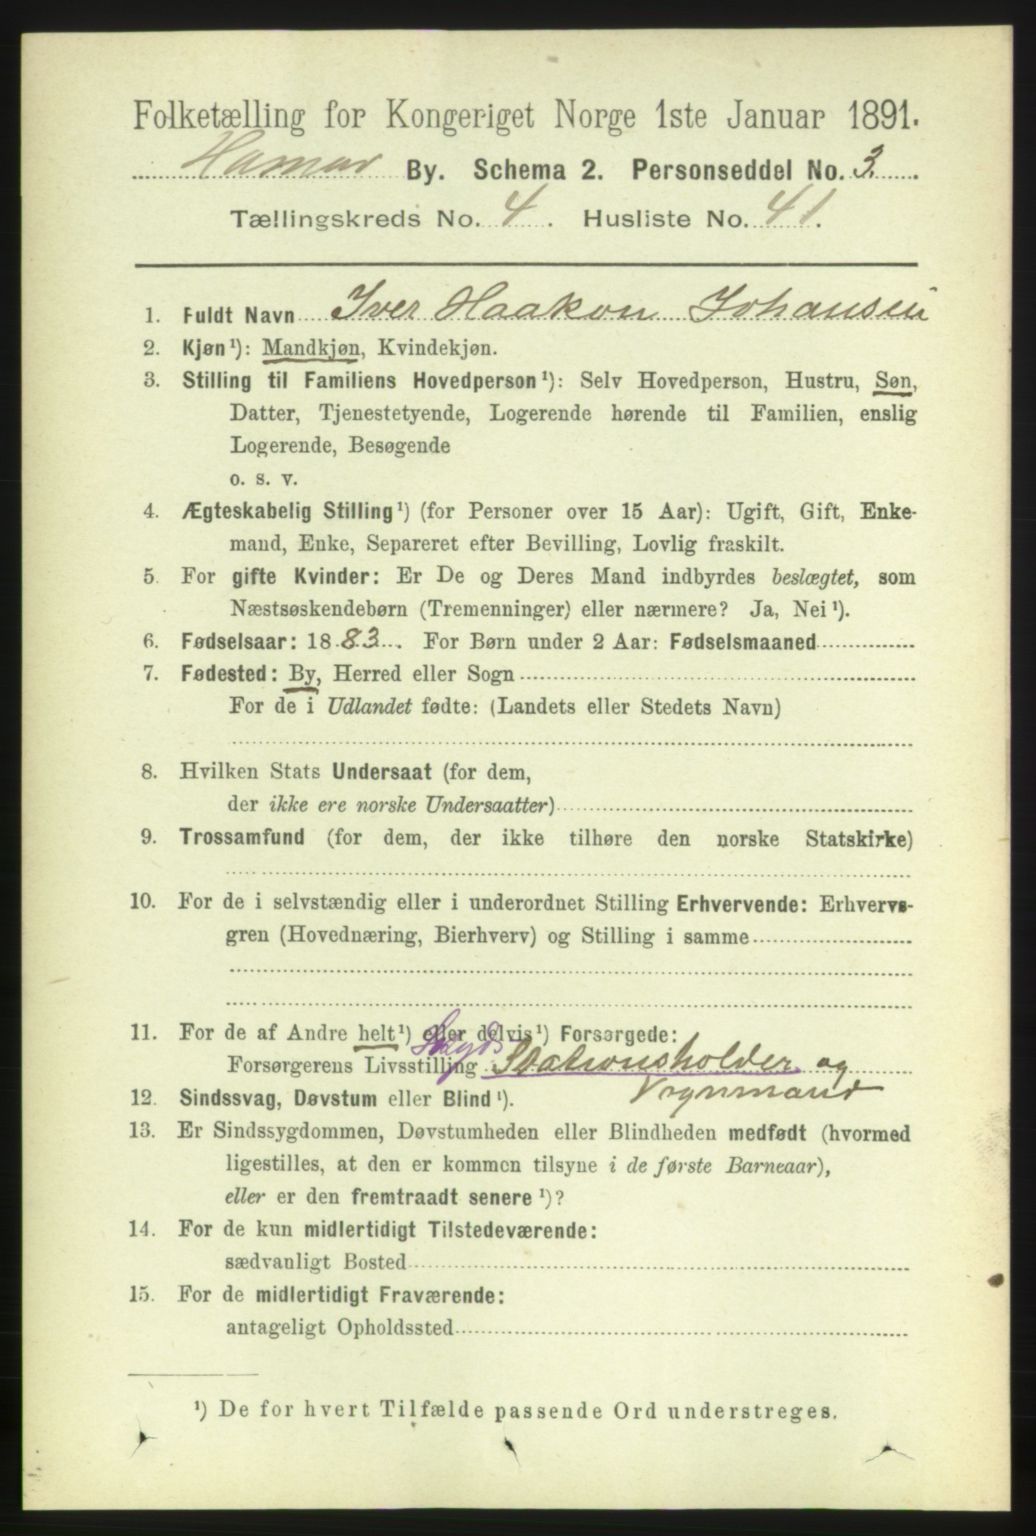 Folketælling for Kongeriget Norge 1ste Januar 1891.
Hamar By. Schema 2. Personseddel No. 3.
Tællingskreds No. 4. Husliste No. 41.
1. Fuldt Navn Iver Haakon Johansen
2. Kjøn¹): Mandkjøn, Kvindekjøn.
3. Stilling til Familiens Hovedperson¹): Selv Hovedperson, Hustru, Søn,
Datter, Tjenestetyende, Logerende hørende til Familien, enslig
Logerende, Besøgende
o. s. v.
4. Ægteskabelig Stilling¹) (for Personer over 15 Aar): Ugift, Gift, Enke-
mand, Enke, Separeret efter Bevilling, Lovlig fraskilt.
5. For gifte Kvinder: Er De og Deres Mand indbyrdes beslægtet, som
Næstsøskendebørn (Tremenninger) eller nærmere? Ja, Nei¹).
6. Fødselsaar: 1883. For Børn under 2 Aar: Fødselsmaaned
7. Fødested: By, Herred eller Sogn
For de i Udlandet fødte: (Landets eller Stedets Navn)
8. Hvilken Stats Undersaat (for dem,
der ikke ere norske Undersaatter)
9. Trossamfund (for dem, der ikke tilhøre den norske Statskirke)
10. For de i selvstændig eller i underordnet Stilling Erhvervende: Erhvervs-
gren (Hovednæring, Bierhverv) og Stilling i samme
11. For de af Andre helt¹) eller delvis¹) Forsørgede:
Forsørgerens Livsstilling Skyds Stationsholder og
Vognmand
12. Sindssvag, Døvstum eller Blind¹).
13. Er Sindssygdommen, Døvstumheden eller Blindheden medfødt (hvormed
ligestilles, at den er kommen tilsyne i de første Barneaar),
eller er den fremtraadt senere¹)?
14. For de kun midlertidigt Tilstedeværende:
sædvanligt Bosted
15. For de midlertidigt Fraværende:
antageligt Opholdssted
¹) De for hvert Tilfælde passende Ord understreges.